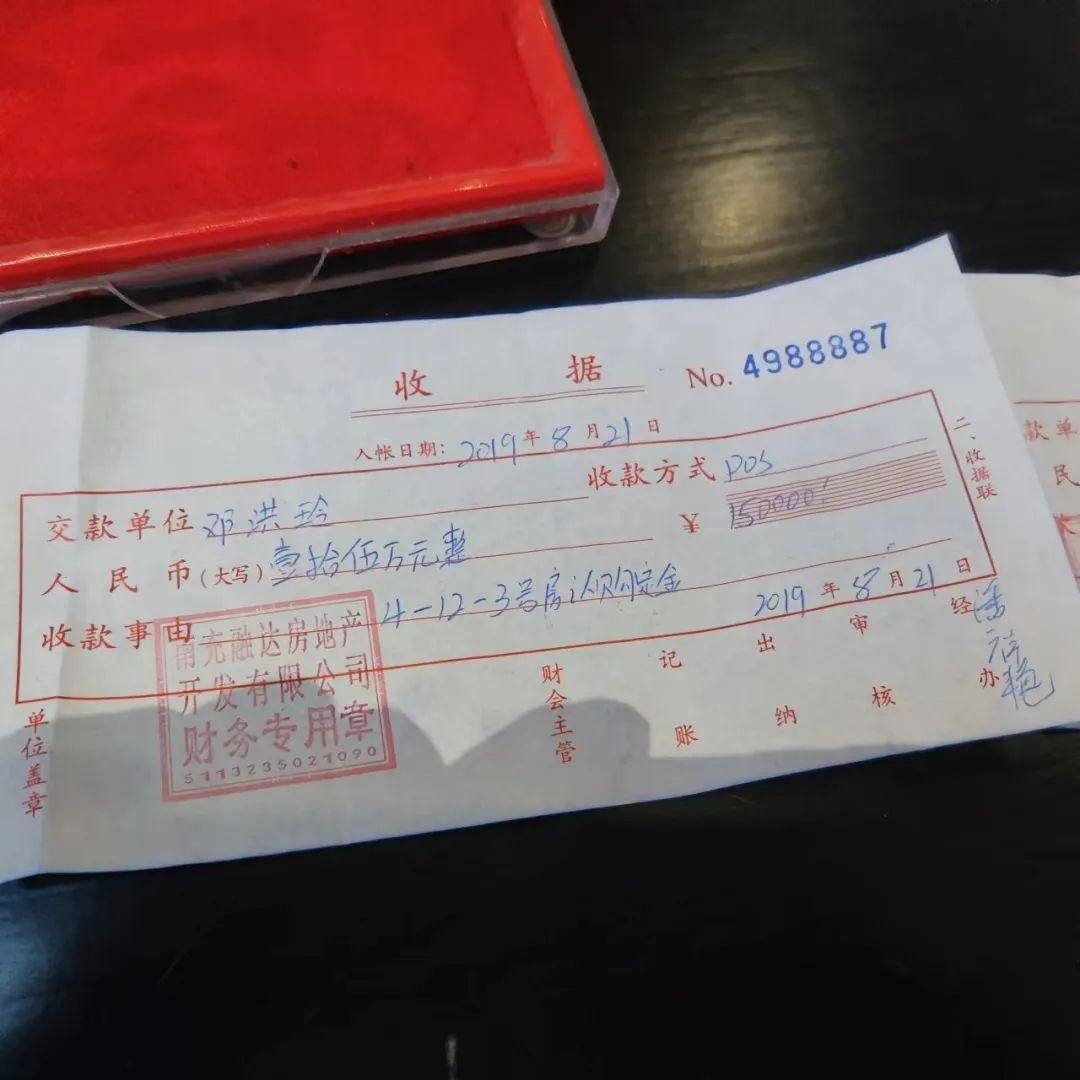 收据 No. 4988887
入帐日期: 2019年8月21日
交款单位 邓洪玲 收款方式 POS
人民币(大写) 壹拾伍万元整 ¥ 150000
收款事由 4-12-3号房认购定金
2019年8月21日
二、收据联
南充融达房地产
开发有限公司
财务专用章
5113235021090
单位盖章 财会主管 记账 出纳 审核 经办
款单
民